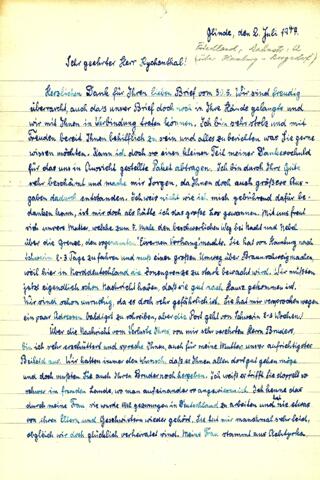 Glinde, den 2. Juli 1947.
Sehr geehrter Herr Kychenthal!
Herzlichen Dank für Ihren lieben Brief vom 30.5. Wir sind freudig
überrascht, auch daß unser Brief doch noch in Ihre Hände gelangte und
wir mit Ihnen in Verbindung treten können. Ich bin sehr stolz und mit
Freuden bereit Ihnen behilflich zu sein und alles zu berichten was Sie gerne
wissen möchten. Kann ich doch so einen kleinen Teil meiner Dankesschuld
für das uns in Aussicht gestellte Paket abtragen. Ich bin durch Ihre Güte
sehr beschämt und mache mir Sorgen, da Ihnen doch auch größere Aus-
gaben dadurch entstanden. Ich weiß nicht wie ich mich gebührend dafür be-
danken kann, ist mir doch als hätte ich das große Los gewonnen. Mit uns freut
sich unsere Mutter, welche zum 7. Male den beschwerlichen Weg bei Nacht und Nebel
über die Grenze, den sogenannten Eisernen Vorhang machte. Sie hat von Hamburg nach
Schwerin 2-3 Tage zu fahren und muß einen großen Umweg über Braunschweig machen,
weil hier in Norddeutschland die Zonengrenze zu stark bewacht wird. Wir müßten
jetzt eigentlich schon Nachricht haben, daß sie gut nach Hause gekommen ist.
Wir sind schon unruhig, da es doch sehr gefährlich ist. Sie hat mir versprochen wegen
ein paar Adressen baldigst zu schreiben, aber die Post geht von Schwerin 2-3 Wochen!
Über die Nachricht vom Verluste Ihres von mir sehr verehrten Herrn Bruders
bin ich sehr erschüttert und spreche Ihnen, auch für meine Mutter unser aufrichtigstes
Beileid aus. Wir hatten immer den Wunsch, daß es Ihnen allen dort gut gehen möge
und doch mußten Sie auch Ihren Bruder noch hergeben. Ich weiß es trifft Sie doppelt so
schwer im fremden Lande, wo man aufeinander so angewiesen ist. Ich kenne das
durch meine Frau sie wurde 1942 gezwungen in Deutschland zu arbeiten und nie etwas
von ihren Eltern und Geschwistern wieder gehört. Sie tut mir manchmal sehr leid,
obgleich wir doch glücklich verheiratet sind. Meine Frau stammt aus Achtyrka.